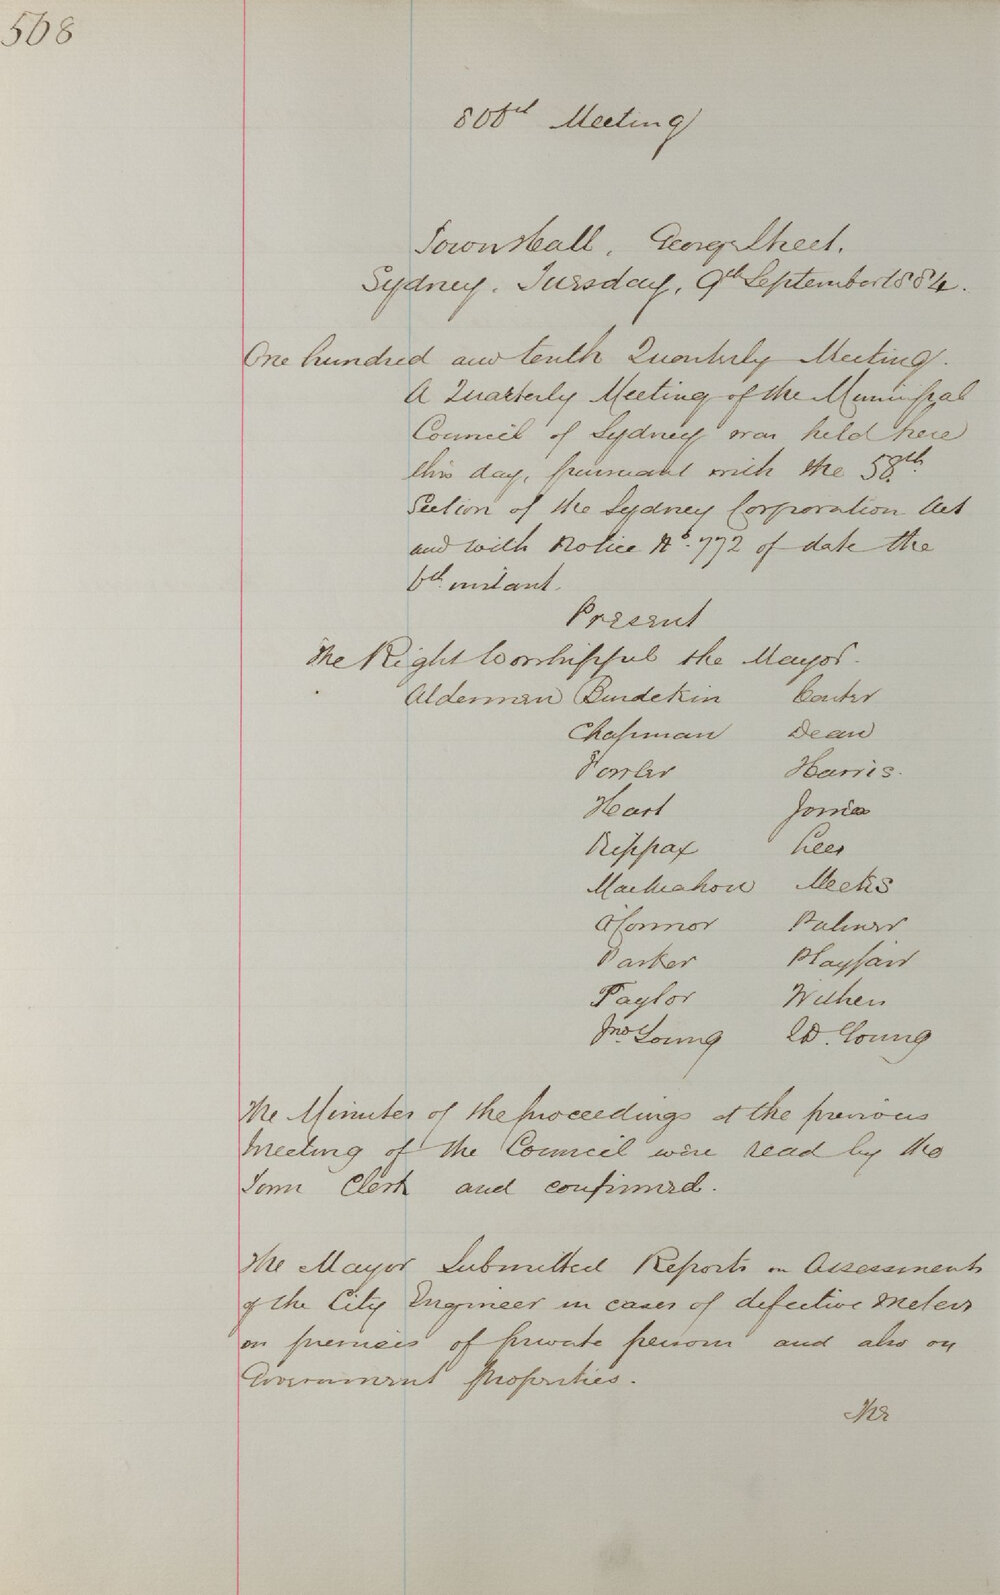 568
806th Meeting
Town Hall, George Street.
Sydney, Tuesday, 9th September 1884.
One hundred and tenth Quarterly Meeting.
A Quarterly Meeting of the Municipal
Council of Sydney was held here
this day, pursuant with the 58th
Section of the Sydney Corporation Act
and with Notice No. 772 of date the
6th instant.
Present
The Right Worshipful the Mayor.
Alderman Burdekin Carter
Chapman Dean
Fowler Harris.
Hart Jones
Kippax Lees
MacMahon Meeks
O'Connor Palmer
Parker Playfair
Taylor Withers
Jno. Young J.D. Young
The Minutes of the proceedings at the previous
Meeting of the Council were read by the
Town Clerk and confirmed.
The Mayor Submitted Reports on Assessments
of the City Engineer in cases of defective Meters
on premises of private persons and also on
Government Properties.
The